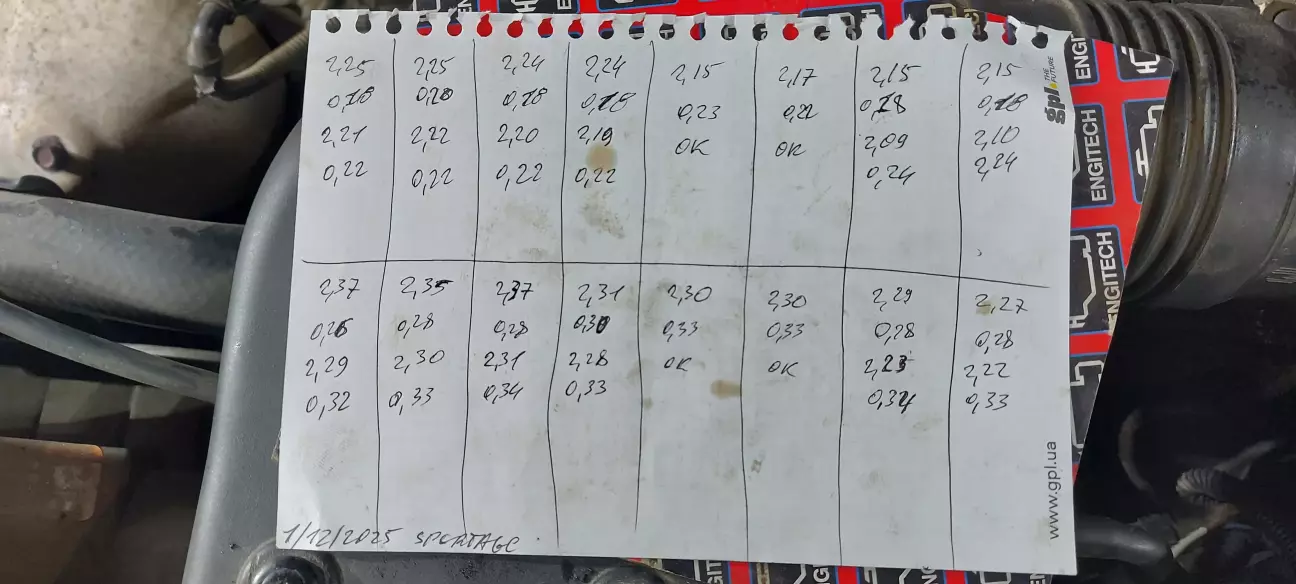 2,25 2,25 2,24 2,24 2,15 2,17 2,15 2,15
0,18 0,20 0,18 0,18 0,23 0,22 0,18 0,18
2,21 2,22 2,20 2,19 OK OK 2,09 2,10
0,22 0,22 0,22 0,22 0,24 2,24
2,37 2,35 2,37 2,31 2,30 2,30 2,29 2,27
0,26 0,28 0,28 0,30 0,33 0,33 0,28 0,28
2,29 2,30 2,31 2,28 OK OK 2,23 2,22
0,32 0,33 0,34 0,33 0,34 0,33
1/12/2025 SPORTAGE
gpl THE FUTURE
www.gpl.ua
ENGITECH
ENGITECH
ENGITECH
ENGITECH